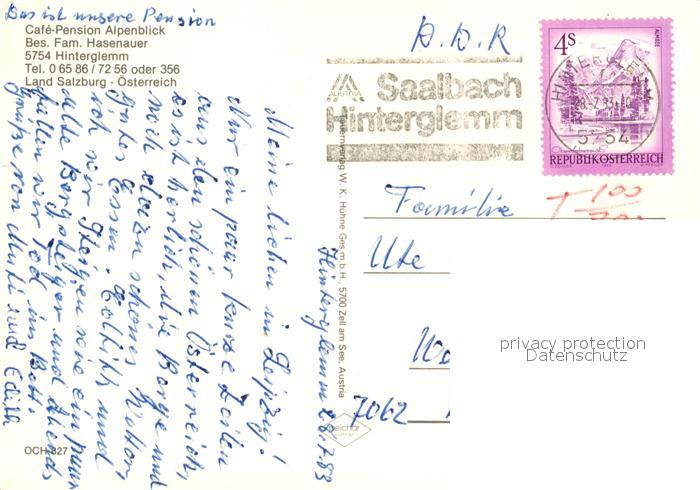 Das ist unsere Pension
Café-Pension Alpenblick
Bes. Fam. Hasenauer
5754 Hinterglemm
Tel. 0 65 86 / 72 56 oder 356
Land Salzburg - Österreich
Hinterglemm 28.7.83
Meine Lieben in Leipzig!
Nur ein paar kurze Zeilen
aus den schönen Österreich,
es ist herrlich, die Berge und
noch dazu schönes Wetter,
gutes Essen. Edith und
ich wir steigen wie ein paar
alte Bergsteiger und Abends
fallen wir Tod ins Bett.
Grüße von Mutti und Edith
OCH 827
D.D.R
AUSTRIA
Saalbach
Hinterglemm
4S
ALMSEE
HINTERGLEMM
28.-7.83
5754
REPUBLIK ÖSTERREICH
T 100
Familie
Ute
7062
W. K. Hühne Ges.m.b.H., 5700 Zell am See, Austria
privacy protection
Datenschutz